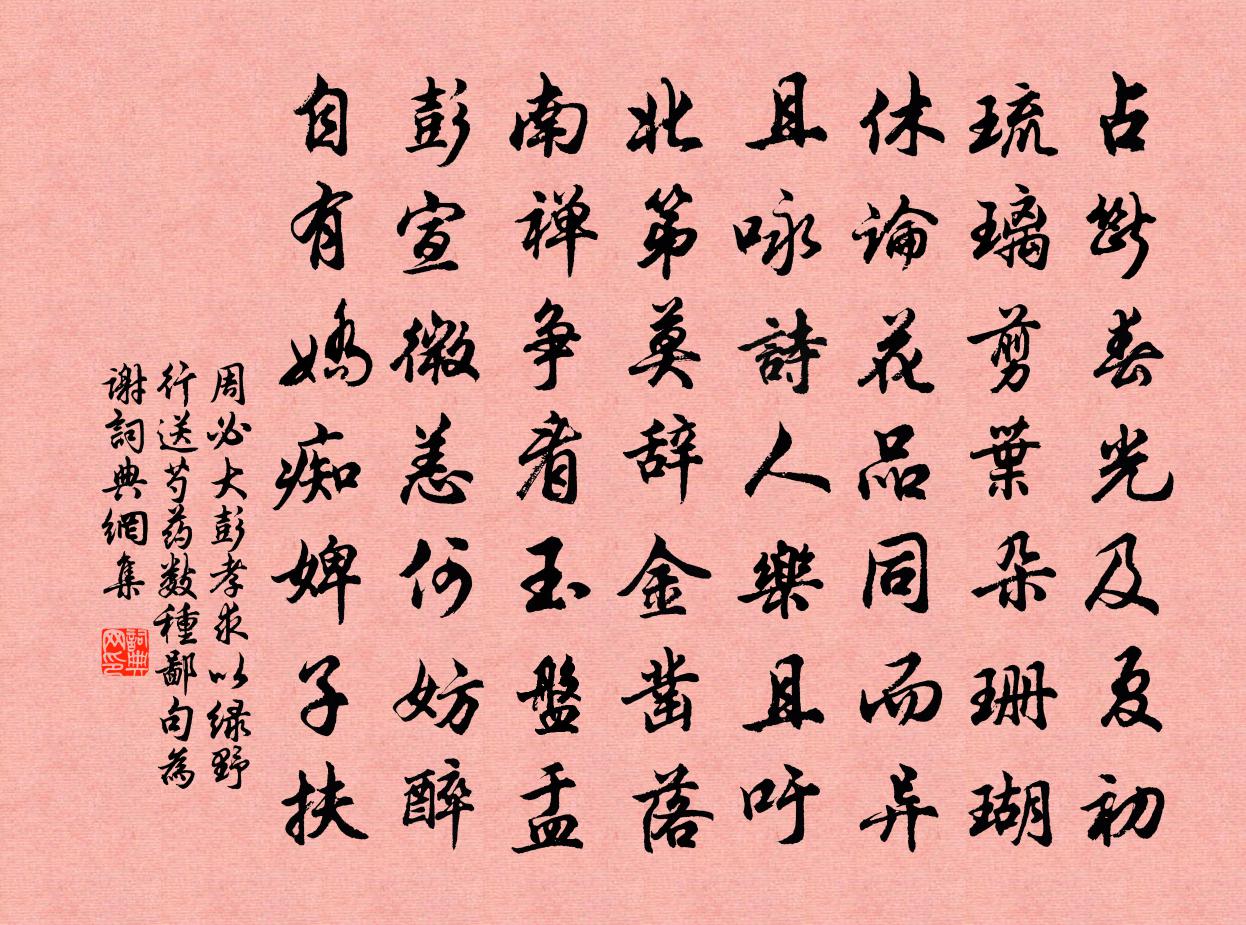 占断春光及夏初
琉璃剪葉朵珊瑚
休論花品同而异
且咏詩人樂且吁
北第莫辞金凿落
南禅争看玉盤盂
彭宣微恙何妨醉
自有嬌痴婢子扶
周必大彭孝求以緑野
行送芍药数種鄙句為
谢詞典網集
詞典网印